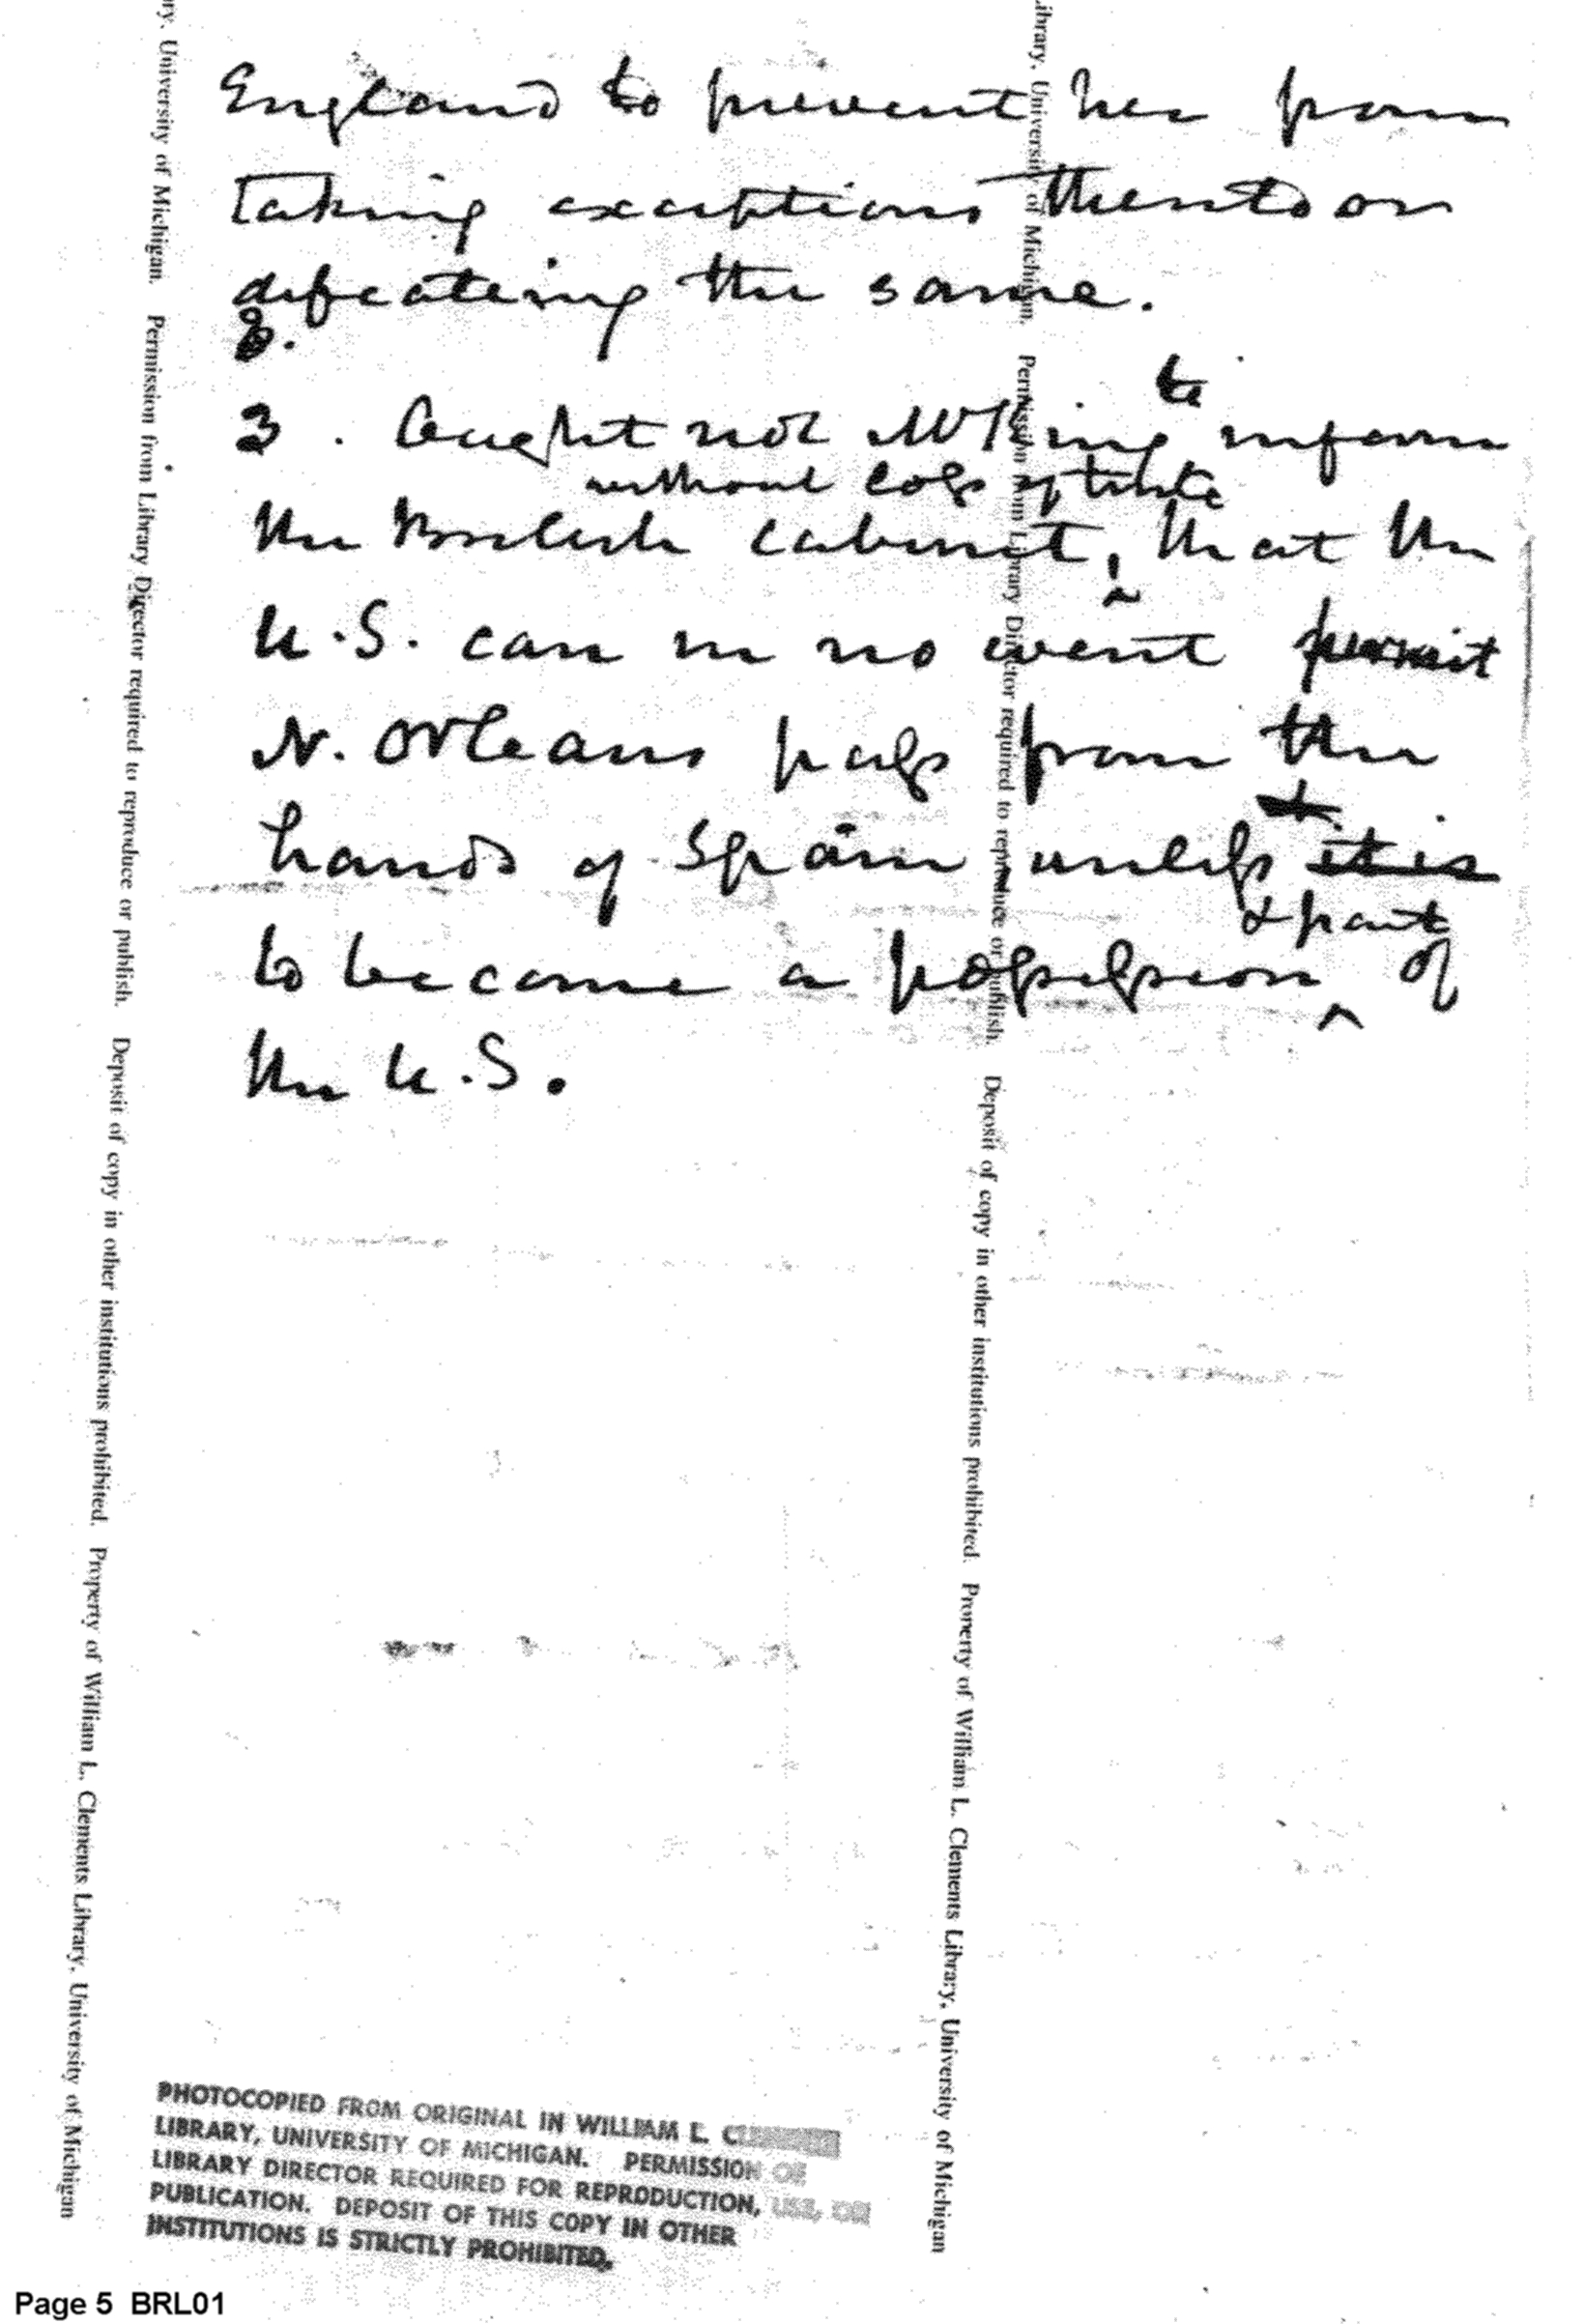 England to prevent her from
taking exceptions thereto or
defeating the same.
3.
to
3. Ought not Mr King inform
without loss of time
the British cabinet, that the
U.S. can in no event permit
N. Orleans pass from the
hands of Spain unless it is
& part
to become a possession ^ of
the U.S.
ry, University of Michigan. Permission from Library Director required to reproduce or publish. Deposit of copy in other institutions prohibited. Property of William L. Clements Library, University of Michigan
Library, University of Michigan. Permission from Library Director required to reproduce or publish. Deposit of copy in other institutions prohibited. Property of William L. Clements Library, University of Michigan
PHOTOCOPIED FROM ORIGINAL IN WILLIAM L. CLEMENTS
LIBRARY, UNIVERSITY OF MICHIGAN. PERMISSION OF
LIBRARY DIRECTOR REQUIRED FOR REPRODUCTION, USE, OR
PUBLICATION. DEPOSIT OF THIS COPY IN OTHER
INSTITUTIONS IS STRICTLY PROHIBITED.
Page 5 BRL01